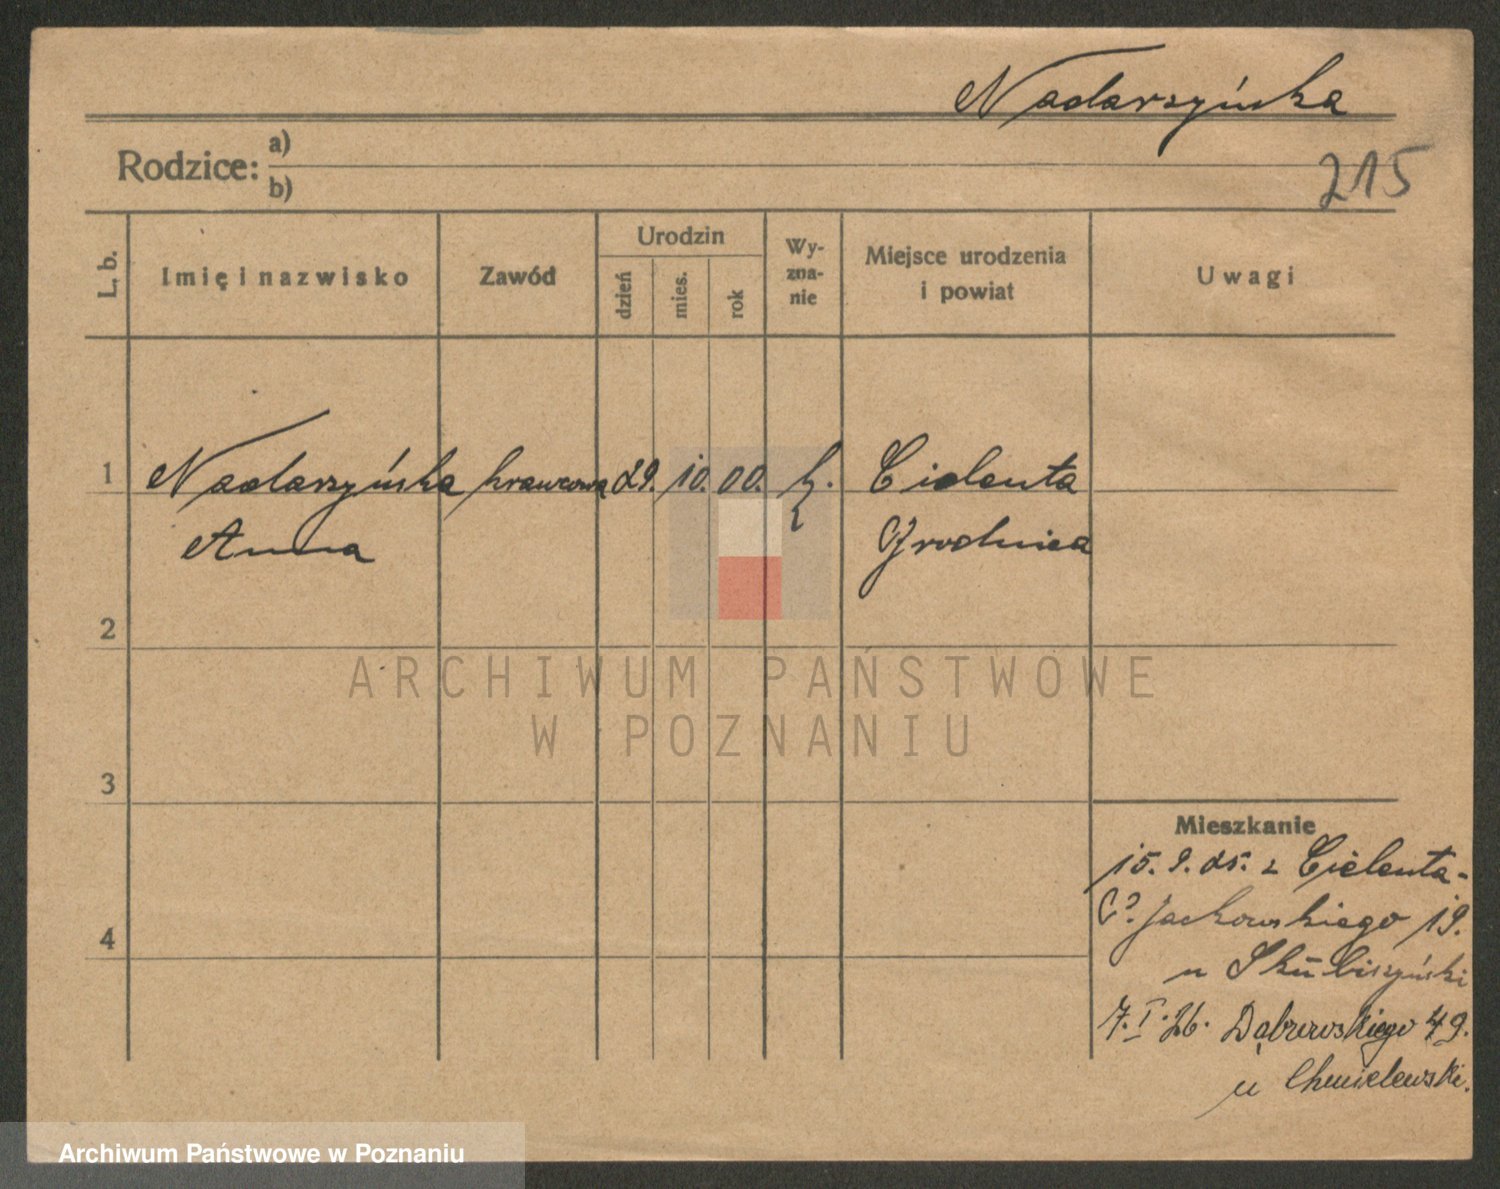 Nadarzyńska
Rodzice: a)
b)
215
L. b.
Imię i nazwisko
Zawód
Urodzin
dzień
mies.
rok
Wy-
zna-
nie
Miejsce urodzenia
i powiat
Uwagi
1
Nadarzyńska krawcowa 29. 10. 00. k. Cielenta
Anna Brodnica
2
3
4
ARCHIWUM PAŃSTWOWE
W POZNANIU
Mieszkanie
15. 9. 25. z Cielenta -
Jackowskiego 19.
u Skubiszyński
7. I. 26. Dąbrowskiego 49.
u Chmielewski.
Archiwum Państwowe w Poznaniu